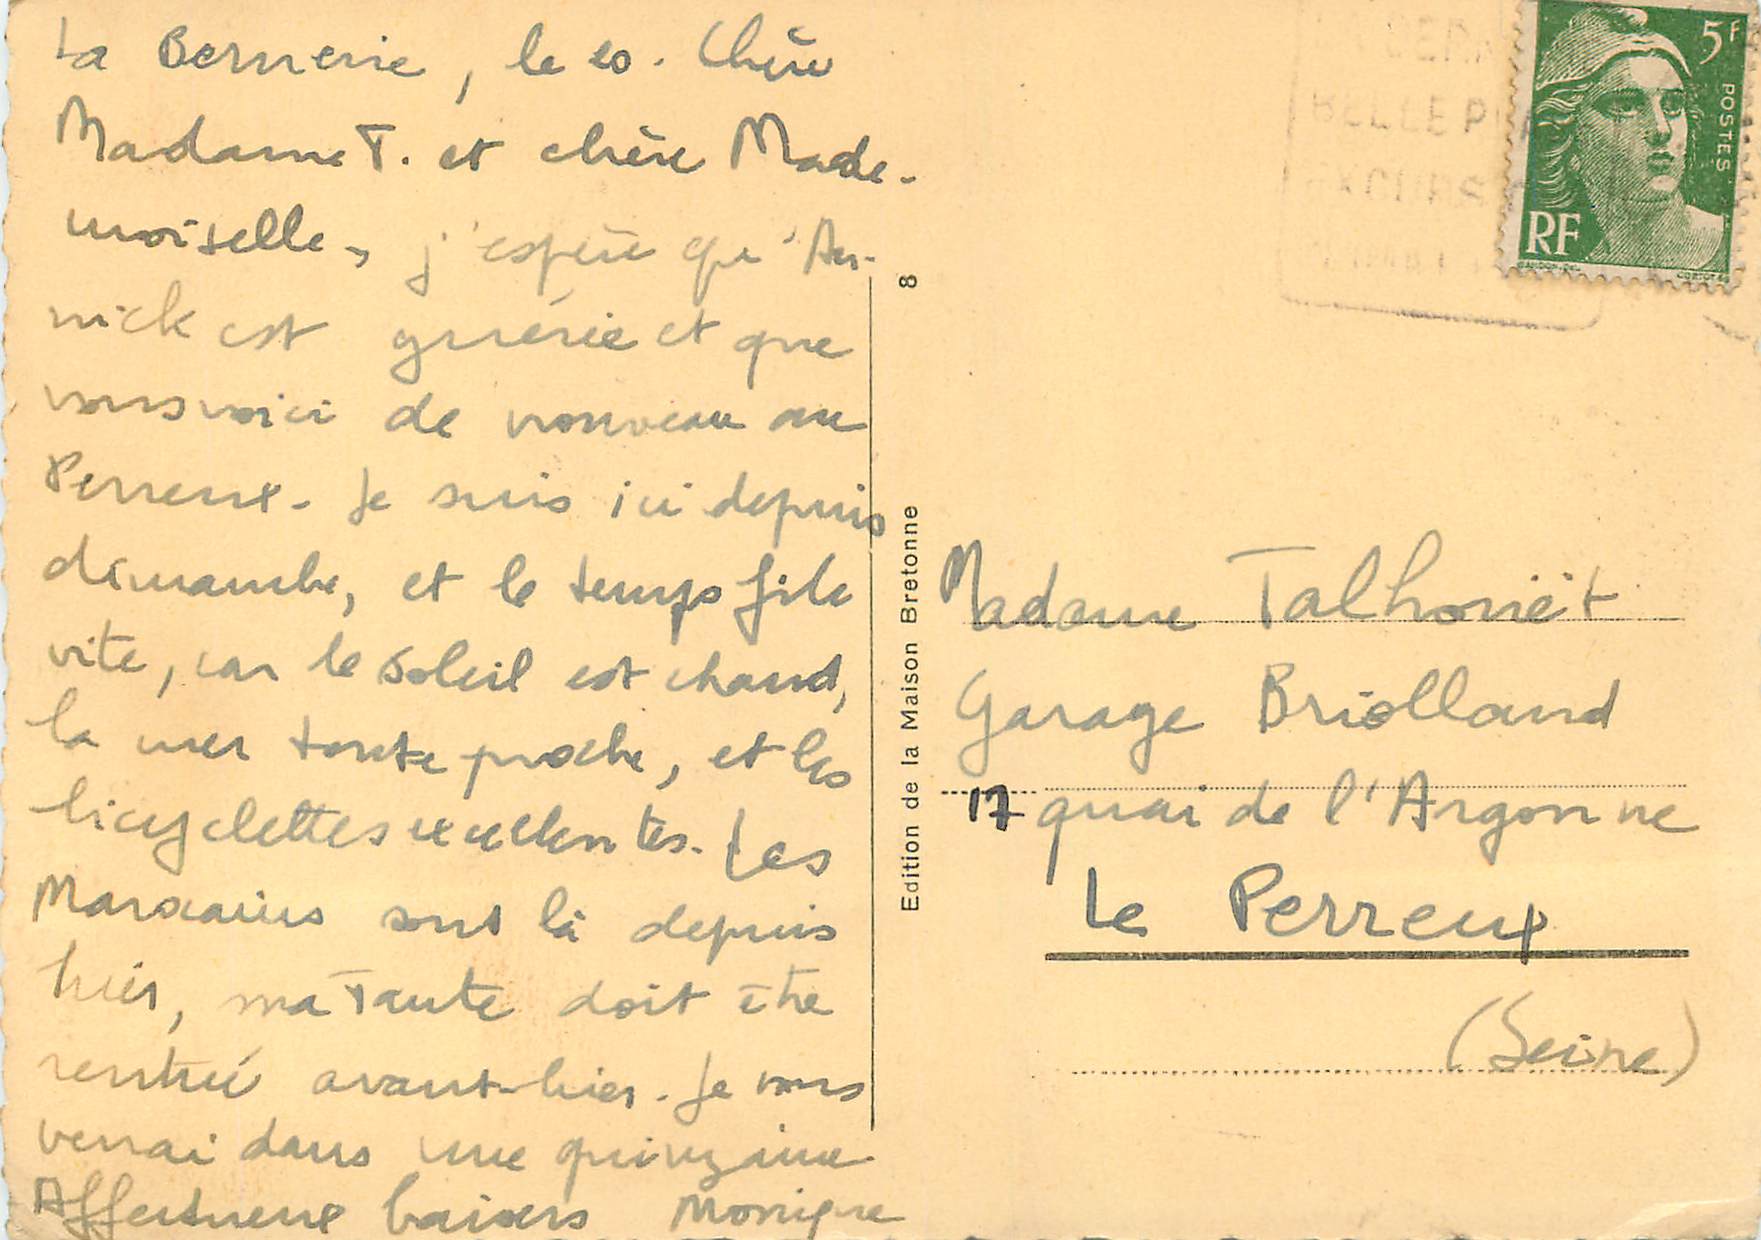 La Bernerie, le 20. Chère
Madame T. et chère Made-
moiselle, j'espère qu'An-
nick est guérie et que
vous voici de nouveau au
Perreux. Je suis ici depuis
dimanche, et le temps file
vite, car le soleil est chaud,
la mer toute proche, et les
bicyclettes excellentes. Les
Marocains sont là depuis
hier, ma Tante doit être
rentrée avant-hier. Je vous
verrai dans une quinzaine
Affectueux baisers Monique
8
Edition de la Maison Bretonne
BELLE
EXCURS
5F
POSTES
RF
Madame Talhouët
Garage Briolland
17 quai de l'Argonne
Le Perreux
(Seine)